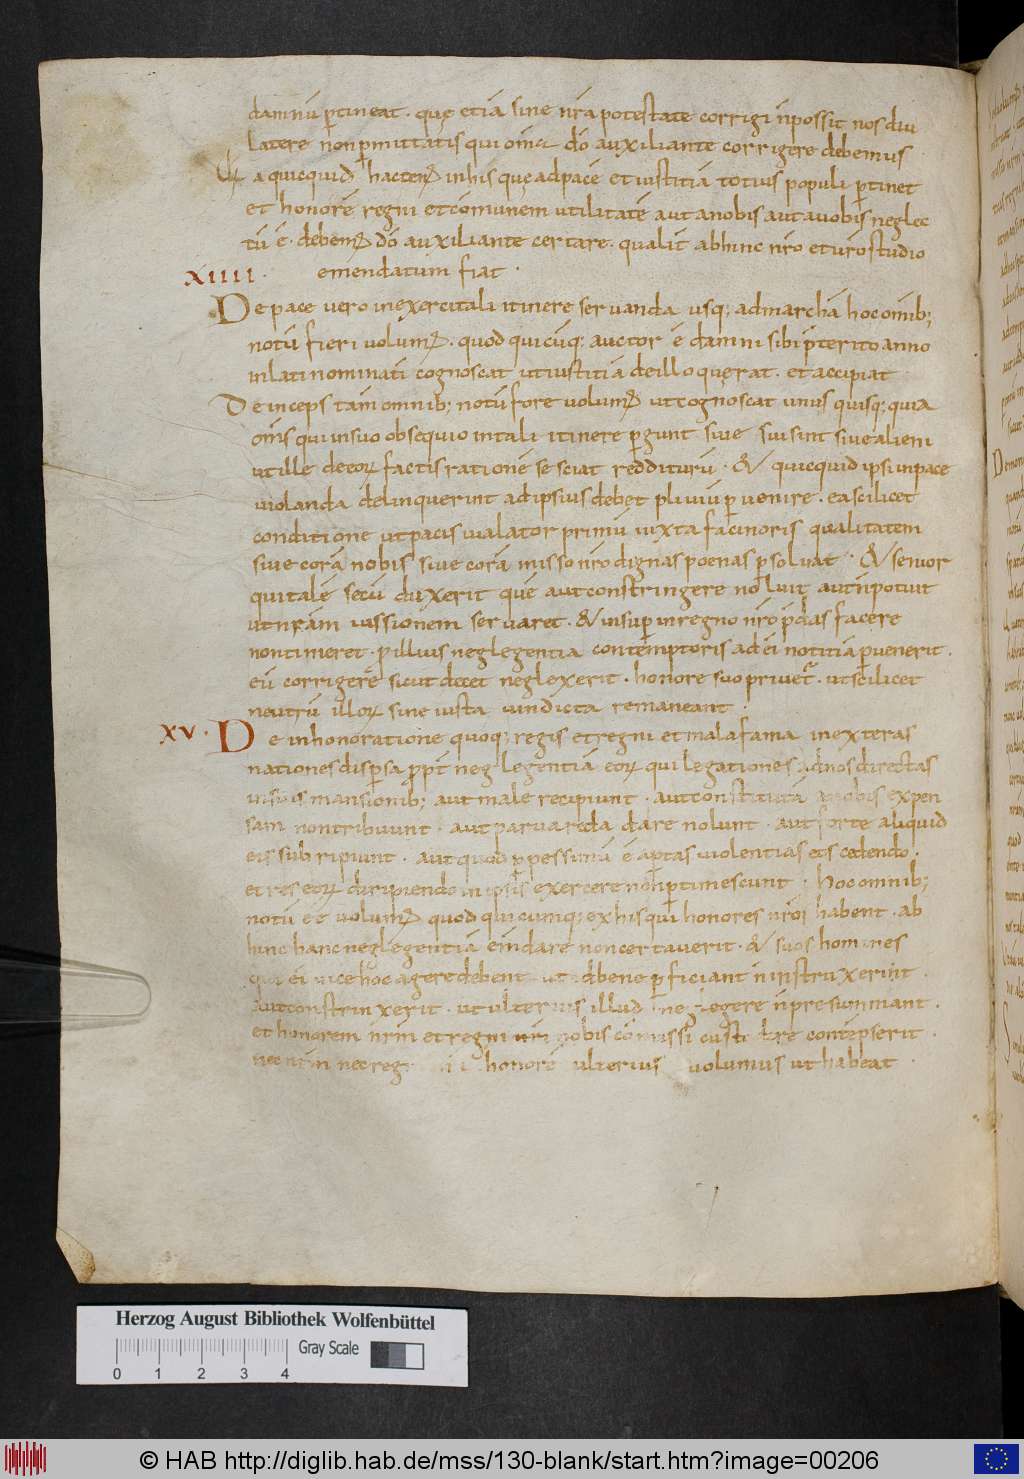 damnū ptineat. que etiā sine nr̄a potestate corrigi n̄possit nos diu
latere non pmittatis qui om̄ia dō auxiliante corrigere debemus
a quicquid hactenꝰ in his que ad pacē et iustitiā totius populi ptinet
et honorē regni et cōmunem utilitatē aut a nobis aut a uobis neglec
tū ē. debemꝰ dō auxiliante certare. qualit̄ abhinc nr̄o et ur̄o studio
XIIII. emendatum fiat.
De pace uero in exercitali itinere seruanda usq; ad marchā hoc omib;
notū fieri uolumꝰ. quod quicūq; auctor ē damni sibi p̄terito anno
inlati nominati cognoscat ut iustitiā de illo querat. et accipiat
Deinceps tām omnib; notū fore uolumꝰ ut cognoscat unus quisq; quia
om̄s qui in suo obsequio in tali itinere pgunt siue sui sint siue alieni
ut ille de eoꝝ factis rationē se sciat redditurū. & quicquid ipsi in pace
uiolanda delinquerint ad ipsius debet pliuiū puenire. ea scilicet
conditione ut pacis uialator primū iuxta facinoris qualitatem
siue corā nobis siue corā misso nr̄o dignas poenas psoluat. & senior
qui talē secū duxerit quē aut constringere noluit aut n̄potuit
ut nr̄am iussionem seruaret. & insup in regno nr̄o p̄das facere
non timeret. p illius neglegentia contemptoris ad ei notitiā puenerit.
eū corrigere sicut decet neglexerit. honore suo priuet̄. ut scilicet
neutrū illoꝝ sine iusta uindicta remaneant.
XV. De inhonoratione quoq; regis et regni et mala fama in exteras
nationes dispsa ppt̄ neglegentiā eoꝝ qui legationes ad nos directas
in suis mansionib; aut male recipiunt. aut constitutā a nobis expen
sam non tribuunt. aut parua reda dare nolunt. aut forte aliquid
eis subripiunt. aut quod ppessimū ē aptas uiolentias eis cedendo.
et res eoꝝ diripiendo in ipsis exercere non ptimescunt. hoc omnib;
notū eē uolumꝰ quod quicumq; ex his qui honores nr̄oi habent. ab
hinc hanc neglegentiā eindare non certauerit. & suos homines
qui ei uice hoc agere debent ut id bene pficiant n̄instruxerint.
aut constrinxerit. ut ulterius illud neglegere n̄presummant.
et honorem nr̄m et regni nr̄i nobis cōmissi custodire contēpserit.
nec nr̄m nec regni honorē ulterius uolumus ut habeat.
Herzog August Bibliothek Wolfenbüttel
Gray Scale
0 1 2 3 4
© HAB http://diglib.hab.de/mss/130-blank/start.htm?image=00206